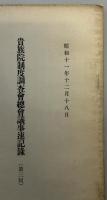 昭和十一年十二月十八日
貴族院制度調査會總會議事速記録
（第二回）